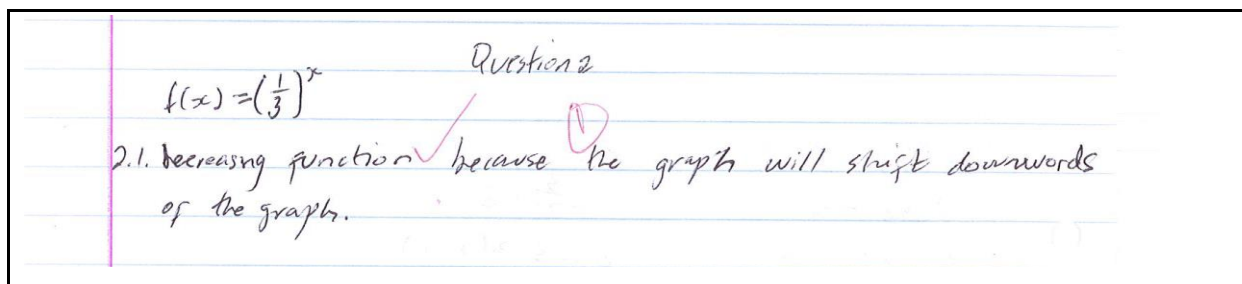 Question 2
f(x) = (1/3)^x
2.1. Decreasng function because the graph will shift downwords
of the graph.
1